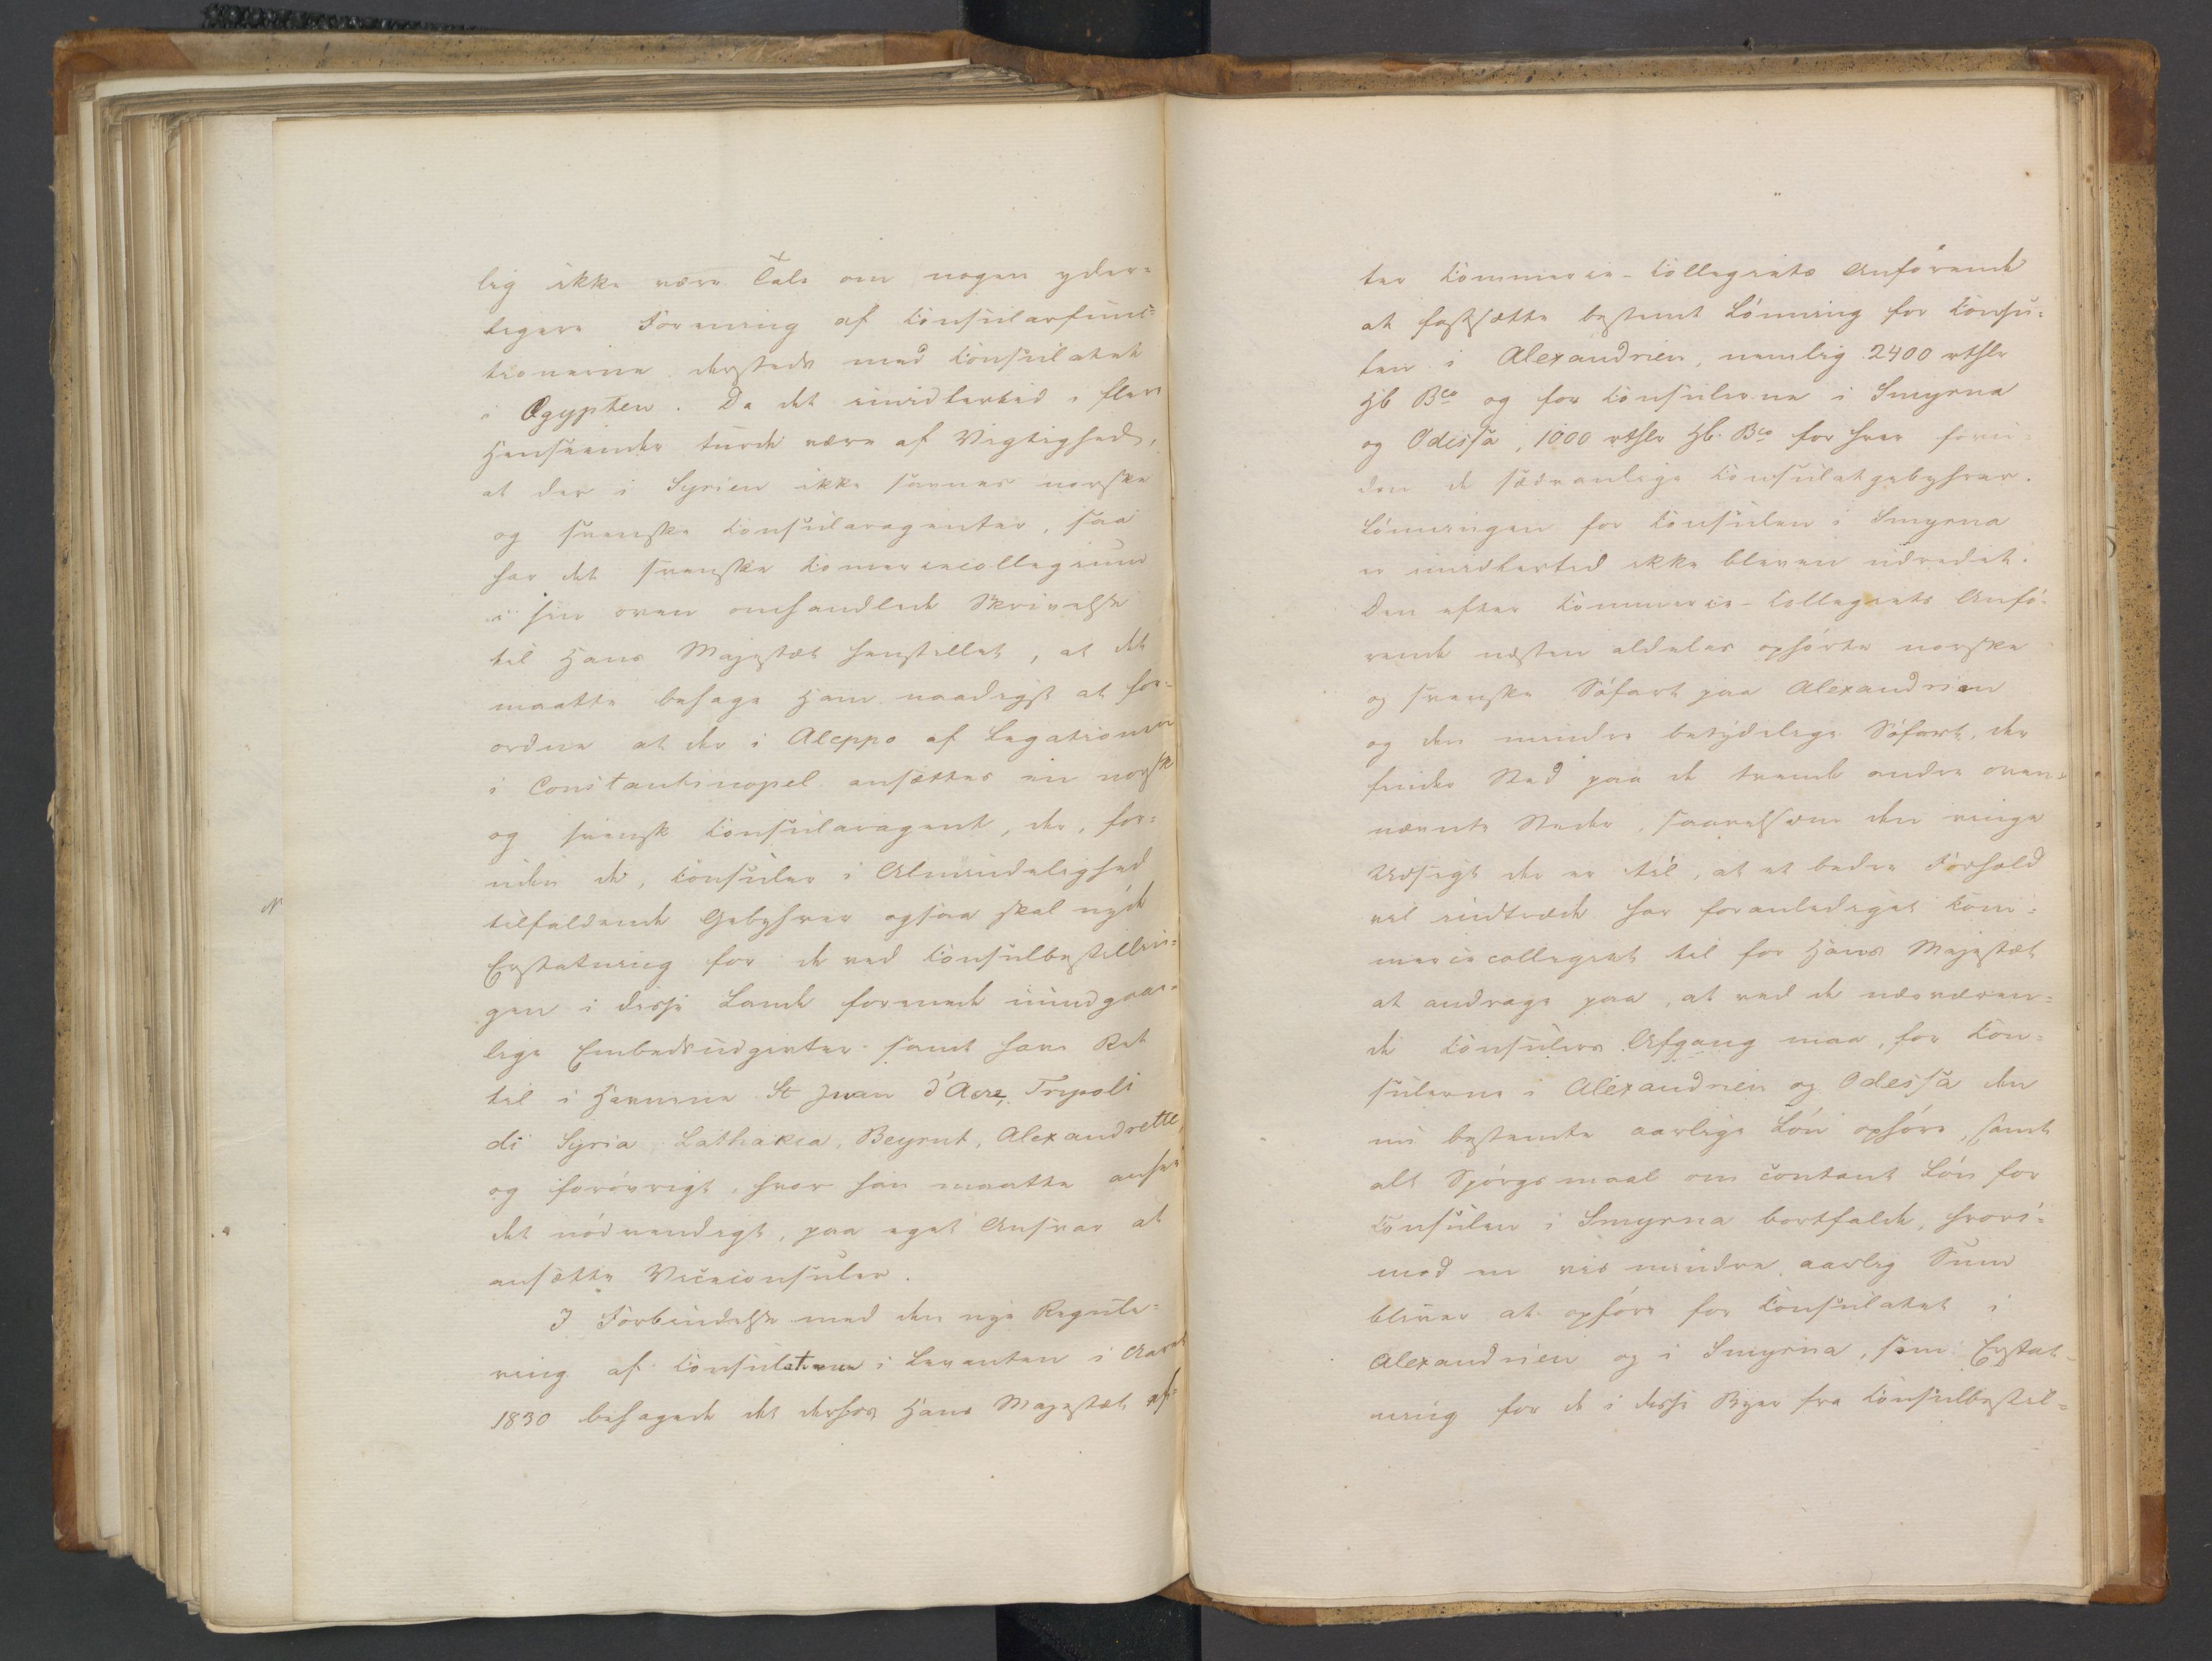 lig ikke være Tale om nogen yder=
ligere Forening af Consularfunc=
tionerne dersteds med Consulatet
i Ægypten. Da det imidlertid i flere
Henseender turde være af Vigtighed,
at der i Syrien ikke savnes norske
og svenske Consularagenter, saa
har det svenske Commercecollegium
i sin oven omhandlede Skrivelse
til Hans Majestæt henstillet, at det
maatte behage Ham naadigst at for=
ordne at der i Aleppo af Legationen
i Constantinopel ansættes en norsk
og svensk Consularagent, der, for=
uden de, Consuler i Almindelighed
tilfaldende Gebyhrer ogsaa skal nyde
Erstatning for de ved Consulbestillin=
gen i disse Lande forenede uundgaae=
lige Embedsudgivter samt have Ret
til i Havnene St Jean d'Acre, Tripoli
di Syria, Lathakia, Beyrut, Alexandrette,
og forøvrigt, hvor han maatte ansee
det nödvendigt, paa eget Ansvar at
ansætte Viceconsuler.
I Forbindelse med den nye Regule=
ring af Consulaterne i Levanten i Aaret
1830 behagede det derhos Hans Majestæt ef=
ter Commerce-Collegiets Anförende
at fastsætte bestemt Lönning for Consu=
len i Alexandrien, nemlig 2400 rthlr
Hb Bco og for Consulerne i Smyrna
og Odessa, 1000 rthlr Hb. Bco for hver foru=
den de sædvanlige Consulatgebyhrer.
Lönningen for Consulen i Smyrna
er imidlertid ikke bleven udredet.
Den efter Commerce-Collegiets Anfö=
rende næsten aldeles ophörte norske
og svenske Söfart paa Alexandrien
og den mindre betydelige Söfart, der
finder Sted paa de tvende andre oven=
nævnte Steder, saavelsom den ringe
Udsigt der er til, at et bedre Forhold
vil indtræde har foranlediget Com=
mercecollegiet til for Hans Majestæt
at andrage paa, at ved de nærværen=
de Consulers Afgang maa, for Con=
sulerne i Alexandrien og Odessa den
nu bestemte aarlige Lön ophöre, samt
alt Spörgsmaal om contant Lön for
Consulen i Smyrna bortfalde, hvori=
mod en vis mindre aarlig Sum
bliver at opföre for Consulatet i
Alexandrien og i Smyrna, som Erstat=
ning for de i disse Byer fra Consulbestil=